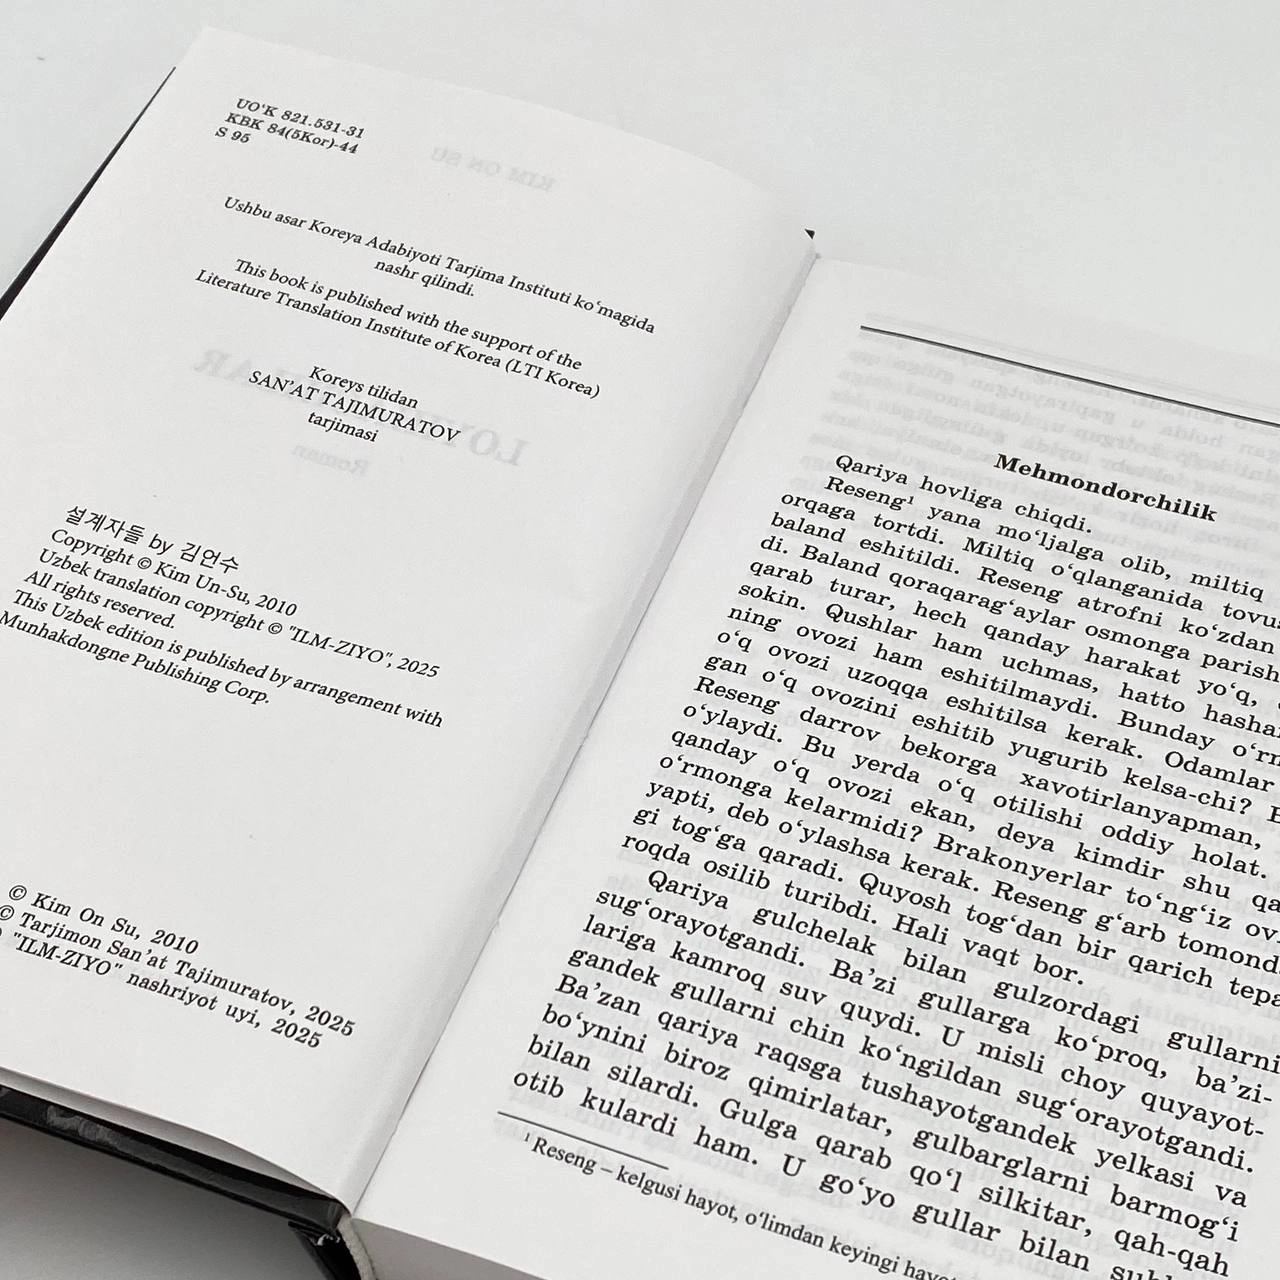 UO‘K 821.531-31
KBK 84(5Kor)-44
S 95
KIM ON SU
Ushbu asar Koreya Adabiyoti Tarjima Instituti ko‘magida
nashr qilindi.
This book is published with the support of the
Literature Translation Institute of Korea (LTI Korea)
Koreys tilidan
SAN’AT TAJIMURATOV
tarjimasi
Roman
설계자들 by 김언수
Copyright © Kim Un-Su, 2010
Uzbek translation copyright © "ILM-ZIYO", 2025
All rights reserved.
This Uzbek edition is published by arrangement with
Munhakdongne Publishing Corp.
© Kim On Su, 2010
© Tarjimon San’at Tajimuratov, 2025
"ILM-ZIYO" nashriyot uyi, 2025
Mehmondorchilik
Qariya hovliga chiqdi.
Reseng¹ yana mo‘ljalga olib, miltiq
orqaga tortdi. Miltiq o‘qlanganida
baland eshitildi. Reseng atrofni ko‘zdan
di. Baland qoraqarag‘aylar osmonga
qarab turar, hech qanday harakat yo‘q,
sokin. Qushlar ham uchmas, hatto
ning ovozi ham eshitilmaydi. Bunday
o‘q ovozi uzoqqa eshitilsa kerak. Odamlar
gan o‘q ovozini eshitib yugurib kelsa-chi?
Reseng darrov bekorga xavotirlanyapman,
o‘ylaydi. Bu yerda o‘q otilishi oddiy holat.
qanday o‘q ovozi ekan, deya kimdir shu
o‘rmonga kelarmidi? Brakonyerlar to‘ng‘iz
yapti, deb o‘ylashsa kerak. Reseng g‘arb
gi tog‘ga qaradi. Quyosh tog‘dan bir qarich
roqda osilib turibdi. Hali vaqt bor.
Qariya gulchelak bilan gulzordagi gullarni
sug‘orayotgandi. Ba’zi gullarga ko‘proq, ba’zi-
lariga kamroq suv quydi. U misli choy quyayot-
gandek gullarni chin ko‘ngildan sug‘orayotgandi.
Ba’zan qariya raqsga tushayotgandek yelkasi va
bo‘ynini biroz qimirlatar, gulbarglarni barmog‘i
bilan silardi. Gulga qarab qo‘l silkitar, qah-qah
otib kulardi ham. U go‘yo gullar bilan
¹ Reseng – kelgusi hayot, o‘limdan keyingi